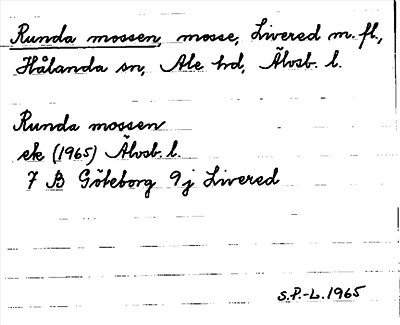 Runda mossen, mosse, Livered m. fl.,
Hålanda sn, Ale hd, Älvsb. l.
Runda mossen
ek (1965) Älvsb. l.
7 B Göteborg 9j Livered
S.P.-L. 1965